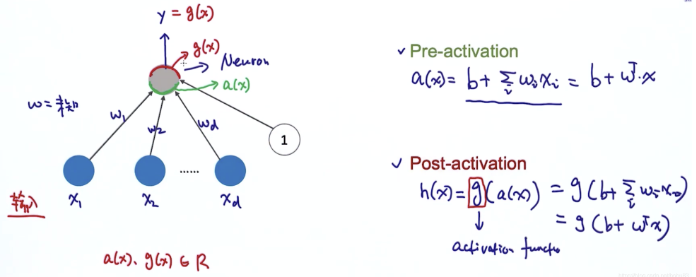 y = g(x)
g(x)
Neuron
a(x)
w₁
w₂
w_d
1
x₁
x₂
......
x_d
a(x), g(x) ∈ R
✓ Pre-activation
a(x) = b + Σᵢ wᵢxᵢ = b + wᵀ·x
✓ Post-activation
h(x) = g(a(x)) = g(b + Σᵢ wᵢxᵢ)
= g(b + wᵀx)
activation functio